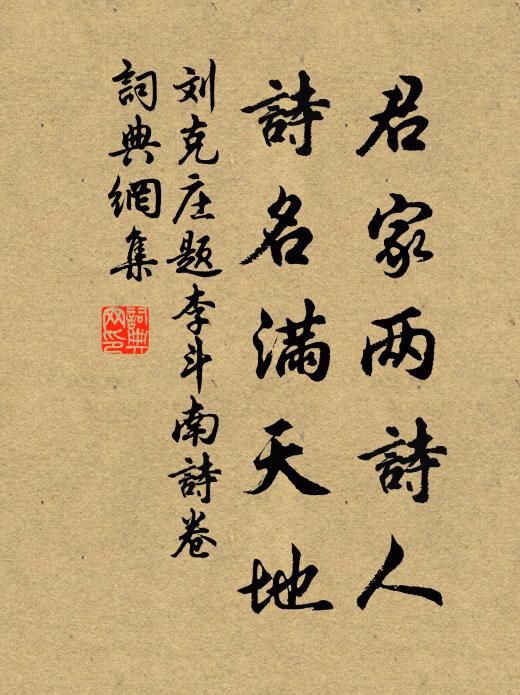 君家两詩人
詩名滿天地
刘克庄题李斗南詩卷
詞典網集
詞典网印